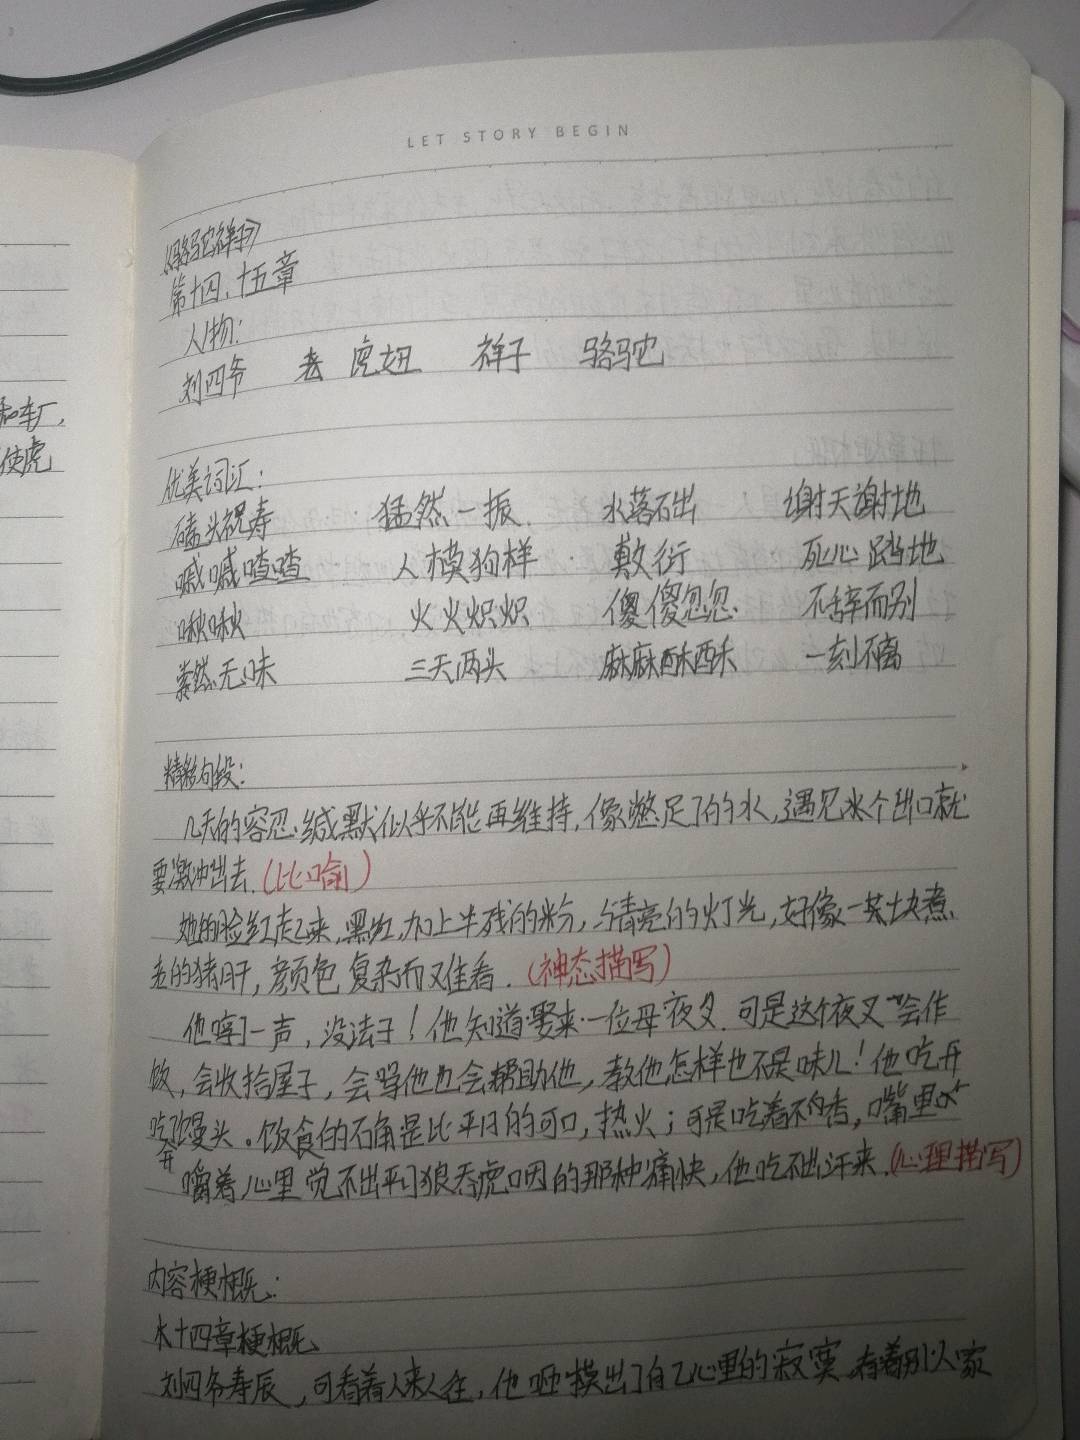 LET STORY BEGIN
《骆驼祥子》
第十四、十五章
人物:
和车厂,
刘四爷 老 虎妞 祥子 骆驼
使虎
优美词汇:
磕头祝寿 猛然一振 水落石出 谢天谢地
嘁嘁喳喳 人模狗样 敷衍 死心踏地
啾啾 火火炽炽 傻傻忽忽 不辞而别
索然无味 三天两头 麻麻酥酥 一刻不离
精彩句段:
几天的容忍缄默似乎不能再维持,像憋足了的水,遇见个出口就
要激冲出去.(比喻)
她的脸红起来,黑红,加上半残的粉,与青亮的灯光,好像一块煮
老的猪肝,颜色复杂而又难看.(神态描写)
他哼了一声,没法子!他知道娶来一位母夜叉.可是这个夜叉会作
饭,会收拾屋子,会骂他也会帮助他,教他怎样也不是味儿!他吃开
吃开馒头。饭食的确是比平日的可口,热火;可是吃着不香,嘴里
嚼着心里觉不出平日狼吞虎咽的那种痛快,他吃不出汗来.(心理描写)
内容梗概:
十四章梗概
刘四爷寿辰,可看着人来人往,他咂摸出了自己心里的寂寞,看着别人家